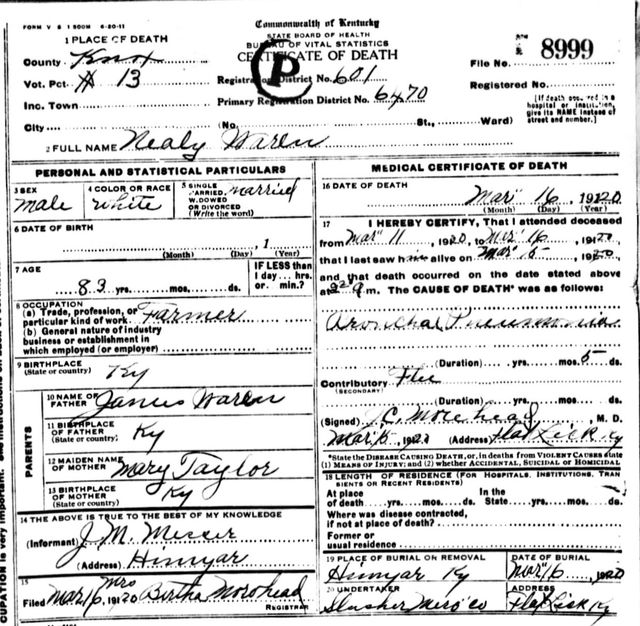 FORM V S 1 500M 6-20-11
Commonwealth of Kentucky
STATE BOARD OF HEALTH
BUREAU OF VITAL STATISTICS
CERTIFICATE OF DEATH
1 PLACE OF DEATH
County Knox
Vot. Pct. # 13
Inc. Town
City
Registration District No. 601
Primary Registration District No. 6470
(No. St., Ward)
P
File No. 8999
Registered No.
[If death occurred in a
hospital or institution,
give its NAME instead of
street and number.]
2 FULL NAME Nealy Waren
PERSONAL AND STATISTICAL PARTICULARS
3 SEX
male
4 COLOR OR RACE
white
5 SINGLE
MARRIED,
WIDOWED
OR DIVORCED
(Write the word)
married
6 DATE OF BIRTH
, 1
(Month) (Day) (Year)
7 AGE
83 yrs. mos. ds.
IF LESS than
1 day... hrs.
or min.?
8 OCCUPATION
(a) Trade, profession, or
particular kind of work Farmer
(b) General nature of industry
business or establishment in
which employed (or employer)
9 BIRTHPLACE
(State or country) Ky
PARENTS
10 NAME OF
FATHER James Waren
11 BIRTHPLACE
OF FATHER
(State or country) Ky
12 MAIDEN NAME
OF MOTHER Mary Taylor
13 BIRTHPLACE
OF MOTHER
(State or country) Ky
14 THE ABOVE IS TRUE TO THE BEST OF MY KNOWLEDGE
(Informant) J. M. Messer
(Address) Himyar
15
Filed Mar 16 1920 Mrs Birtha Morohead
REGISTRAR
MEDICAL CERTIFICATE OF DEATH
16 DATE OF DEATH
Mar 16, 1920
(Month) (Day) (Year)
17 I HEREBY CERTIFY, That I attended deceased
from Mar 11, 1920 to Mar 16 1920
that I last saw him alive on Mar 15 1920
and that death occurred on the date stated above
at m. The CAUSE OF DEATH* was as follows:
Bronchal Pneumonia
(Duration) yrs. mos. 5 ds.
Contributory Flu
(SECONDARY)
(Duration) yrs. mos. ds.
(Signed) J. C. Morehead, M. D.
Mar 16, 1920 (Address) Flat Lick Ky
*State the DISEASE CAUSING DEATH, or, in deaths from VIOLENT CAUSES state
(1) MEANS OF INJURY; and (2) whether ACCIDENTAL, SUICIDAL OR HOMICIDAL
18 LENGTH OF RESIDENCE (FOR HOSPITALS, INSTITUTIONS, TRAN
SIENTS OR RECENT RESIDENTS)
At place In the
of death yrs. mos. ds. State yrs. mos. ds.
Where was disease contracted,
if not at place of death?
Former or
usual residence
19 PLACE OF BURIAL OR REMOVAL
Himyar Ky
DATE OF BURIAL
Mar 16, 1920
20 UNDERTAKER
Slusher Merc Co
ADDRESS
Flat Lick Ky
CUPATION is very important.